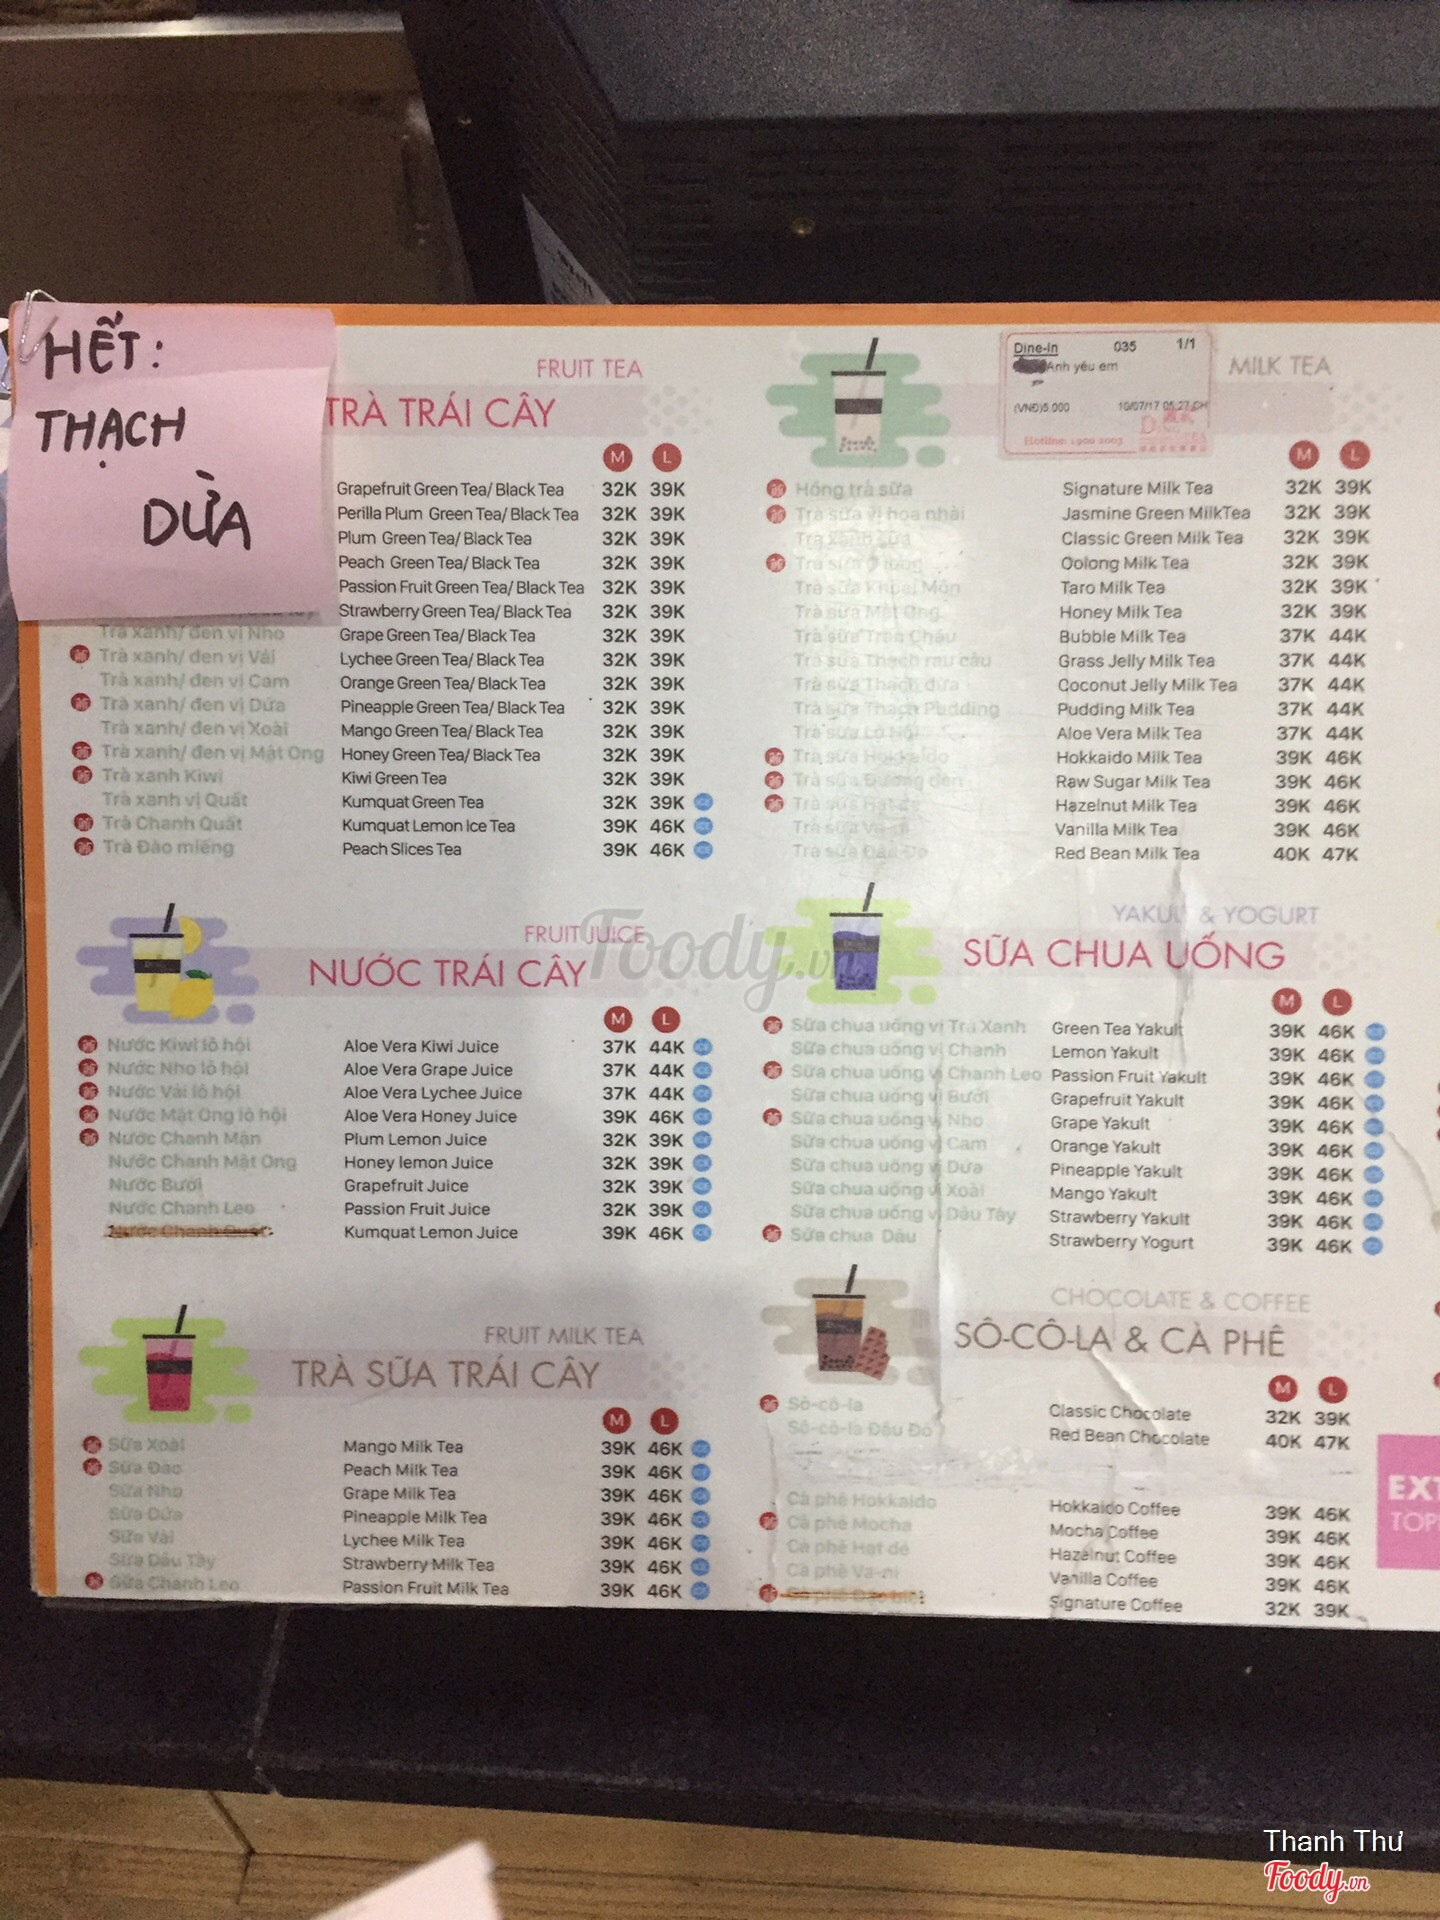 HẾT:
THẠCH
DỪA
FRUIT TEA
TRÀ TRÁI CÂY
M L
Grapefruit Green Tea/ Black Tea 32K 39K
Perilla Plum Green Tea/ Black Tea 32K 39K
Plum Green Tea/ Black Tea 32K 39K
Peach Green Tea/ Black Tea 32K 39K
Passion Fruit Green Tea/ Black Tea 32K 39K
Strawberry Green Tea/ Black Tea 32K 39K
Trà xanh/ đen vị Nho Grape Green Tea/ Black Tea 32K 39K
Trà xanh/ đen vị Vải Lychee Green Tea/ Black Tea 32K 39K
Trà xanh/ đen vị Cam Orange Green Tea/ Black Tea 32K 39K
Trà xanh/ đen vị Dứa Pineapple Green Tea/ Black Tea 32K 39K
Trà xanh/ đen vị Xoài Mango Green Tea/ Black Tea 32K 39K
Trà xanh/ đen vị Mật Ong Honey Green Tea/ Black Tea 32K 39K
Trà xanh Kiwi Kiwi Green Tea 32K 39K
Trà xanh vị Quất Kumquat Green Tea 32K 39K ICE
Trà Chanh Quất Kumquat Lemon Ice Tea 39K 46K ICE
Trà Đào miếng Peach Slices Tea 39K 46K ICE
FRUIT JUICE
NƯỚC TRÁI CÂY
M L
Nước Kiwi lô hội Aloe Vera Kiwi Juice 37K 44K ICE
Nước Nho lô hội Aloe Vera Grape Juice 37K 44K ICE
Nước Vải lô hội Aloe Vera Lychee Juice 37K 44K ICE
Nước Mật Ong lô hội Aloe Vera Honey Juice 39K 46K ICE
Nước Chanh Mận Plum Lemon Juice 32K 39K ICE
Nước Chanh Mật Ong Honey lemon Juice 32K 39K ICE
Nước Bưởi Grapefruit Juice 32K 39K ICE
Nước Chanh Leo Passion Fruit Juice 32K 39K ICE
Nước Chanh Quất Kumquat Lemon Juice 39K 46K ICE
FRUIT MILK TEA
TRÀ SỮA TRÁI CÂY
M L
Sữa Xoài Mango Milk Tea 39K 46K ICE
Sữa Đào Peach Milk Tea 39K 46K ICE
Sữa Nho Grape Milk Tea 39K 46K ICE
Sữa Dứa Pineapple Milk Tea 39K 46K ICE
Sữa Vải Lychee Milk Tea 39K 46K ICE
Sữa Dâu Tây Strawberry Milk Tea 39K 46K ICE
Sữa Chanh Leo Passion Fruit Milk Tea 39K 46K ICE
Dine-In 035 1/1
Anh yêu em
(VNĐ)5.000 10/07/17 05:27 CH
Hotline: 1900 2003
MILK TEA
M L
Hồng trà sữa Signature Milk Tea 32K 39K
Trà sữa vị hoa nhài Jasmine Green MilkTea 32K 39K
Trà xanh sữa Classic Green Milk Tea 32K 39K
Trà sữa Ô long Oolong Milk Tea 32K 39K
Trà sữa Khoai Môn Taro Milk Tea 32K 39K
Trà sữa Mật Ong Honey Milk Tea 32K 39K
Trà sữa Trân Châu Bubble Milk Tea 37K 44K
Trà sữa Thạch rau câu Grass Jelly Milk Tea 37K 44K
Trà sữa Thạch dừa Coconut Jelly Milk Tea 37K 44K
Trà sữa Thạch Pudding Pudding Milk Tea 37K 44K
Trà sữa Lô Hội Aloe Vera Milk Tea 37K 44K
Trà sữa Hokkaido Hokkaido Milk Tea 39K 46K
Trà sữa Đường đen Raw Sugar Milk Tea 39K 46K
Trà sữa Hạt dẻ Hazelnut Milk Tea 39K 46K
Trà sữa Va-ni Vanilla Milk Tea 39K 46K
Trà sữa Đậu Đỏ Red Bean Milk Tea 40K 47K
YAKULT & YOGURT
SỮA CHUA UỐNG
M L
Sữa chua uống vị Trà Xanh Green Tea Yakult 39K 46K ICE
Sữa chua uống vị Chanh Lemon Yakult 39K 46K ICE
Sữa chua uống vị Chanh Leo Passion Fruit Yakult 39K 46K ICE
Sữa chua uống vị Bưởi Grapefruit Yakult 39K 46K ICE
Sữa chua uống vị Nho Grape Yakult 39K 46K ICE
Sữa chua uống vị Cam Orange Yakult 39K 46K ICE
Sữa chua uống vị Dứa Pineapple Yakult 39K 46K ICE
Sữa chua uống vị Xoài Mango Yakult 39K 46K ICE
Sữa chua uống vị Dâu Tây Strawberry Yakult 39K 46K ICE
Sữa chua Dâu Strawberry Yogurt 39K 46K ICE
CHOCOLATE & COFFEE
SÔ-CÔ-LA & CÀ PHÊ
M L
Sô-cô-la Classic Chocolate 32K 39K
Sô-cô-la Đậu Đỏ Red Bean Chocolate 40K 47K
Cà phê Hokkaido Hokkaido Coffee 39K 46K
Cà phê Mocha Mocha Coffee 39K 46K
Cà phê Hạt dẻ Hazelnut Coffee 39K 46K
Cà phê Va-ni Vanilla Coffee 39K 46K
Cà phê Đặc biệt Signature Coffee 32K 39K
EXT
TOP
Foody.vn
Thanh Thư
Foody.vn